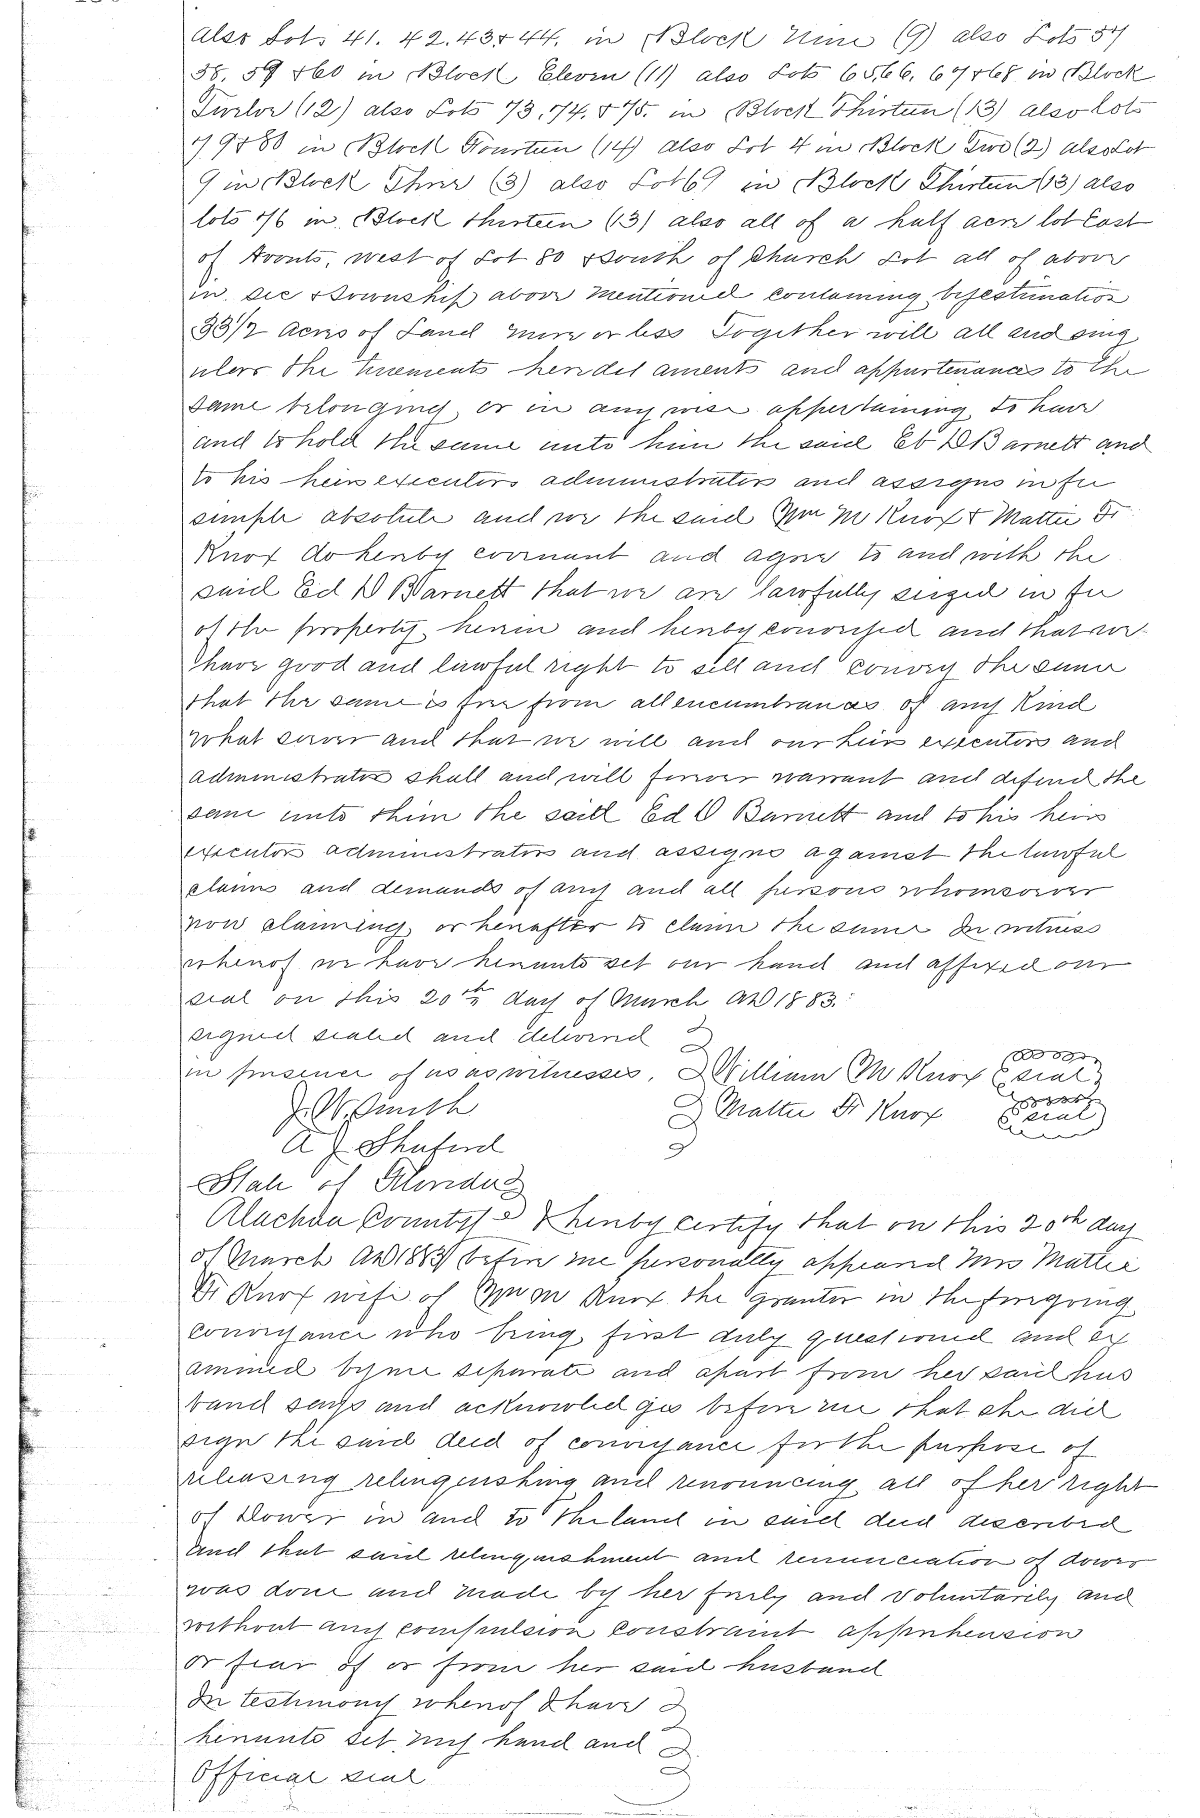 also Lots 41. 42. 43 & 44. in Block Nine (9) also Lots 57
58. 59 & 60 in Block Eleven (11) also Lots 65, 66. 67 & 68 in Block
Twelve (12) also Lots 73, 74. & 75. in Block Thirteen (13) also Lots
79 & 80 in Block Fourteen (14) also Lot 4 in Block Two (2) also Lot
9 in Block Three (3) also Lot 69 in Block Thirteen (13) also
lots 76 in Block thirteen (13) also all of a half acre lot East
of Avonts, west of Lot 80 & South of Church Lot all of above
in Sec & Township above mentioned containing by estimation
33 1/2 Acres of Land more or less Together will all and sing
ulers the tenements heredet aments and appurtenances to the
same belonging or in any wise appertaining to have
and to hold the same unto him the said Ed D Barnett and
to his heirs executors administrators and assigns in fee
simple absolute and we the said Wm M Knox & Mattie F.
Knox do hereby covenant and agree to and with the
said Ed D Barnett that we are lawfully seized in fee
of the property herein and hereby conveyed and that we
have good and lawful right to sell and convey the same
that the same is free from all encumbrances of any Kind
what soever and that we will and our heirs executors and
administrators shall and will forever warrant and defend the
same unto him the said Ed D Barnett and to his heirs
executors administrators and assigns against the lawful
claims and demands of any and all persons whomsoever
now claiming or hereafter to claim the same In witness
whereof we have hereunto set our hand and affixed our
seal on this 20th day of March AD 1883.
signed sealed and delivered
in presence of us as witnesses. William M Knox seal
J. W. Smith Mattie F. Knox seal
A J Shuford
State of Florida
Alachua County I hereby certify that on this 20th day
of March AD 1883 before me personally appeared Mrs Mattie
F. Knox wife of Wm M Knox the grantor in the foregoing
conveyance who being first duly questioned and ex
amined by me separate and apart from her said hus
band says and acknowled ges before me that she did
sign the said deed of conveyance for the purpose of
releasing relinquishing and renouncing all of her right
of Dower in and to the land in said deed described
and that said relinquishment and renunciation of dower
was done and made by her freely and voluntarily and
without any compulsion constraint apprehension
or fear of or from her said husband
In testimony whereof I have
hereunto set my hand and
Official seal